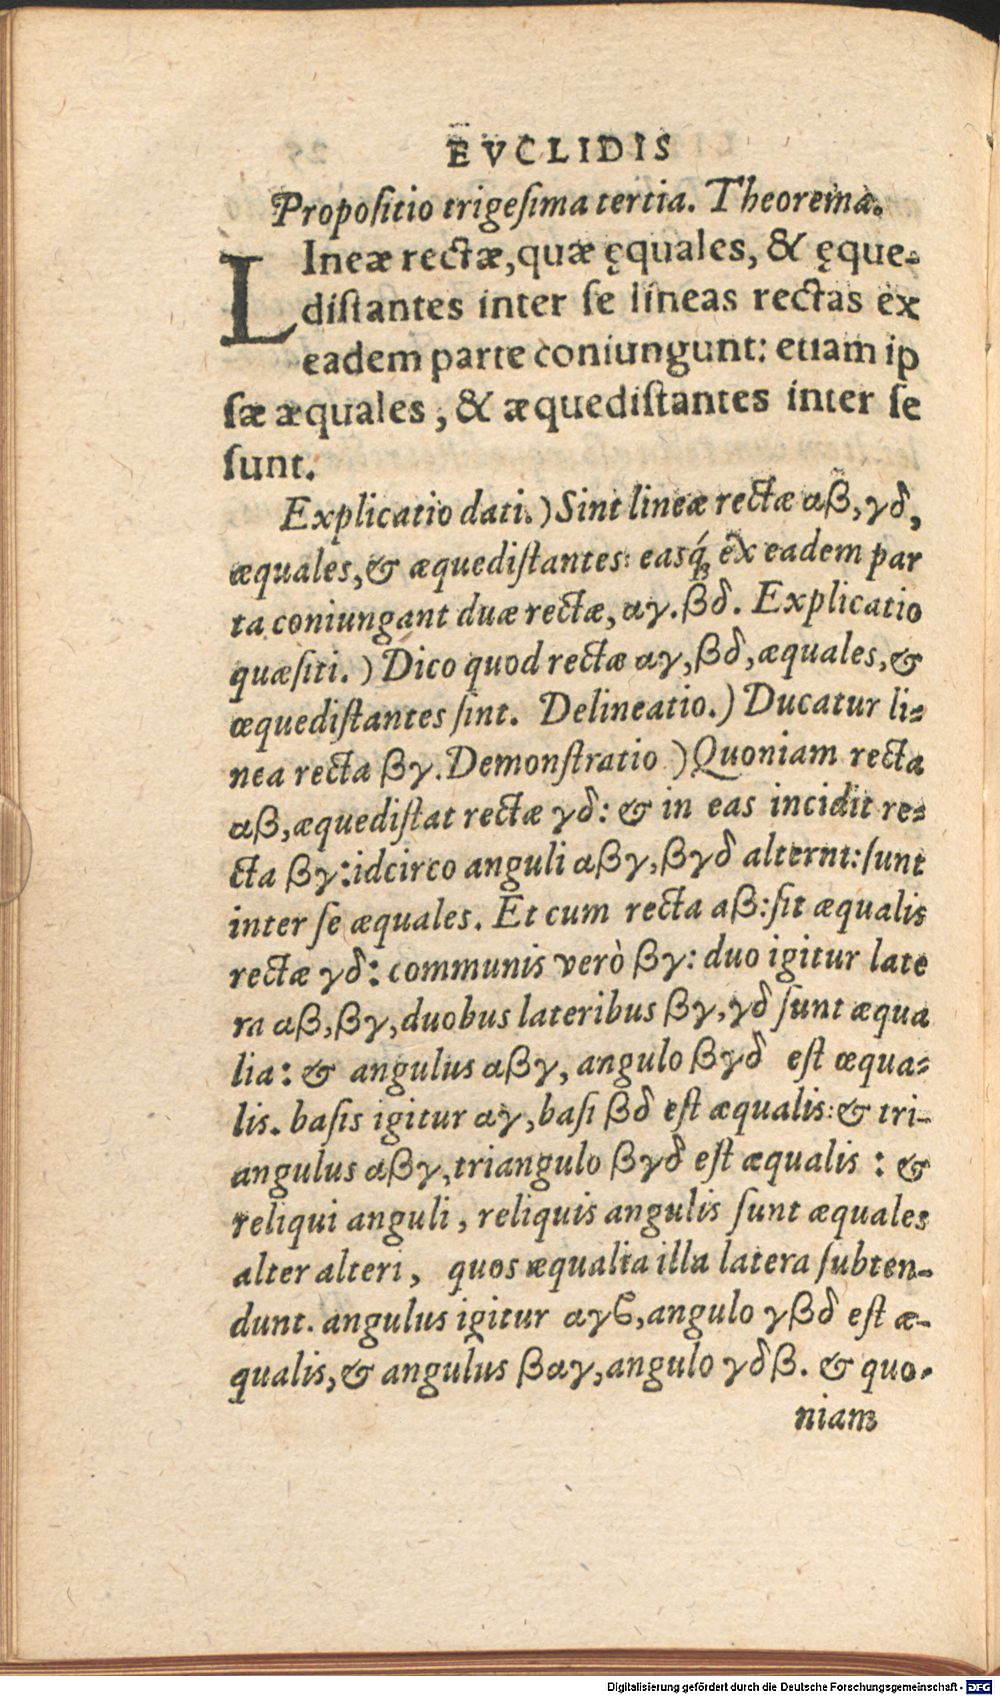 EVCLIDIS
Propoſitio trigeſima tertia. Theorema.
LIneæ rectæ, quæ ęquales, & ęque-
diſtantes inter ſe lineas rectas ex
eadem parte coniungunt: etiam ip
ſæ æquales, & æquediſtantes inter ſe
ſunt.
Explicatio dati.) Sint lineæ rectæ αβ, γδ,
æquales, & æquediſtantes: easq́; ex eadem par
ta coniungant duæ rectæ, αγ. βδ. Explicatio
quæſiti.) Dico quod rectæ αγ, βδ, æquales, &
æquediſtantes ſint. Delineatio.) Ducatur li-
nea recta βγ. Demonſtratio) Quoniam recta
αβ, æquediſtat rectæ γδ: & in eas incidit re-
cta βγ: idcirco anguli αβγ, βγδ alterni: ſunt
inter ſe æquales. Et cum recta aβ: ſit æqualis
rectæ γδ: communis verò βγ: duo igitur late
ra αβ, βγ, duobus lateribus βγ, γδ ſunt æqua
lia: & angulus αβγ, angulo βγδ est æqua-
lis. baſis igitur αγ, baſi βδ eſt æqualis: & tri-
angulus αβγ, triangulo βγδ eſt æqualis : &
reliqui anguli, reliquis angulis ſunt æquales
alter alteri, quos æqualia illa latera ſubten-
dunt. angulus igitur αγϐ, angulo γβδ eſt æ-
qualis, & angulus βαγ, angulo γδβ. & quo-
niam
Digitalisierung gefördert durch die Deutsche Forschungsgemeinschaft - DFG